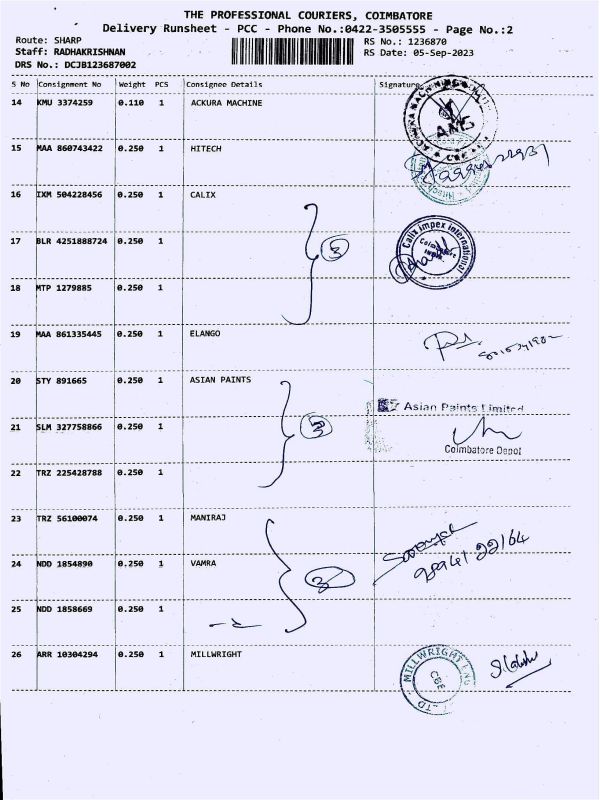 THE PROFESSIONAL COURIERS, COIMBATORE
Delivery Runsheet - PCC - Phone No.:0422-3505555 - Page No.:2
Route: SHARP RS No.: 1236870
Staff: RADHAKRISHNAN RS Date: 05-Sep-2023
DRS No.: DCJB123687002
S No Consignment No Weight PCS Consignee Details Signature
14 KMU 3374259 0.110 1 ACKURA MACHINE
15 MAA 860743422 0.250 1 HITECH
16 IXM 504228456 0.250 1 CALIX
17 BLR 4251888724 0.250 1 3 Calix Impex International Coimbatore
18 MTP 1279885 0.250 1
19 MAA 861335445 0.250 1 ELANGO
20 STY 891665 0.250 1 ASIAN PAINTS
Asian Paints Limited
21 SLM 327758866 0.250 1 3
Coimbatore Depot
22 TRZ 225428788 0.250 1
23 TRZ 56100074 0.250 1 MANIRAJ
24 NDD 1854890 0.250 1 VAMRA
25 NDD 1858669 0.250 1
26 ARR 10304294 0.250 1 MILLWRIGHT
MILLWRIGHT ENG
CBE